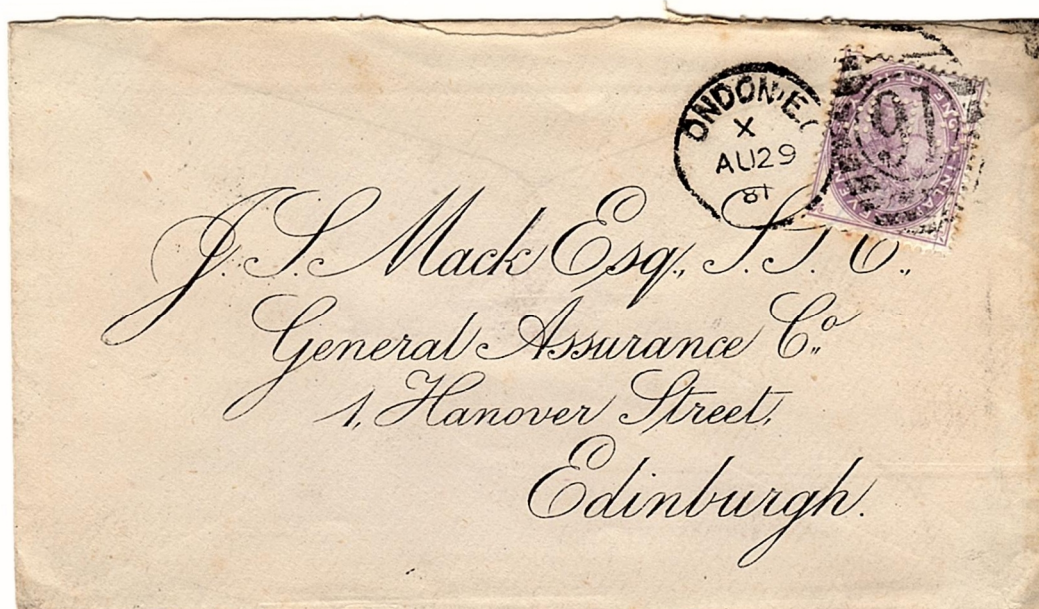 ONDON.E.C
X
AU29
81
91
J. S. Mack Esq., S. S. C.,
General Assurance Co.
1, Hanover Street,
Edinburgh.